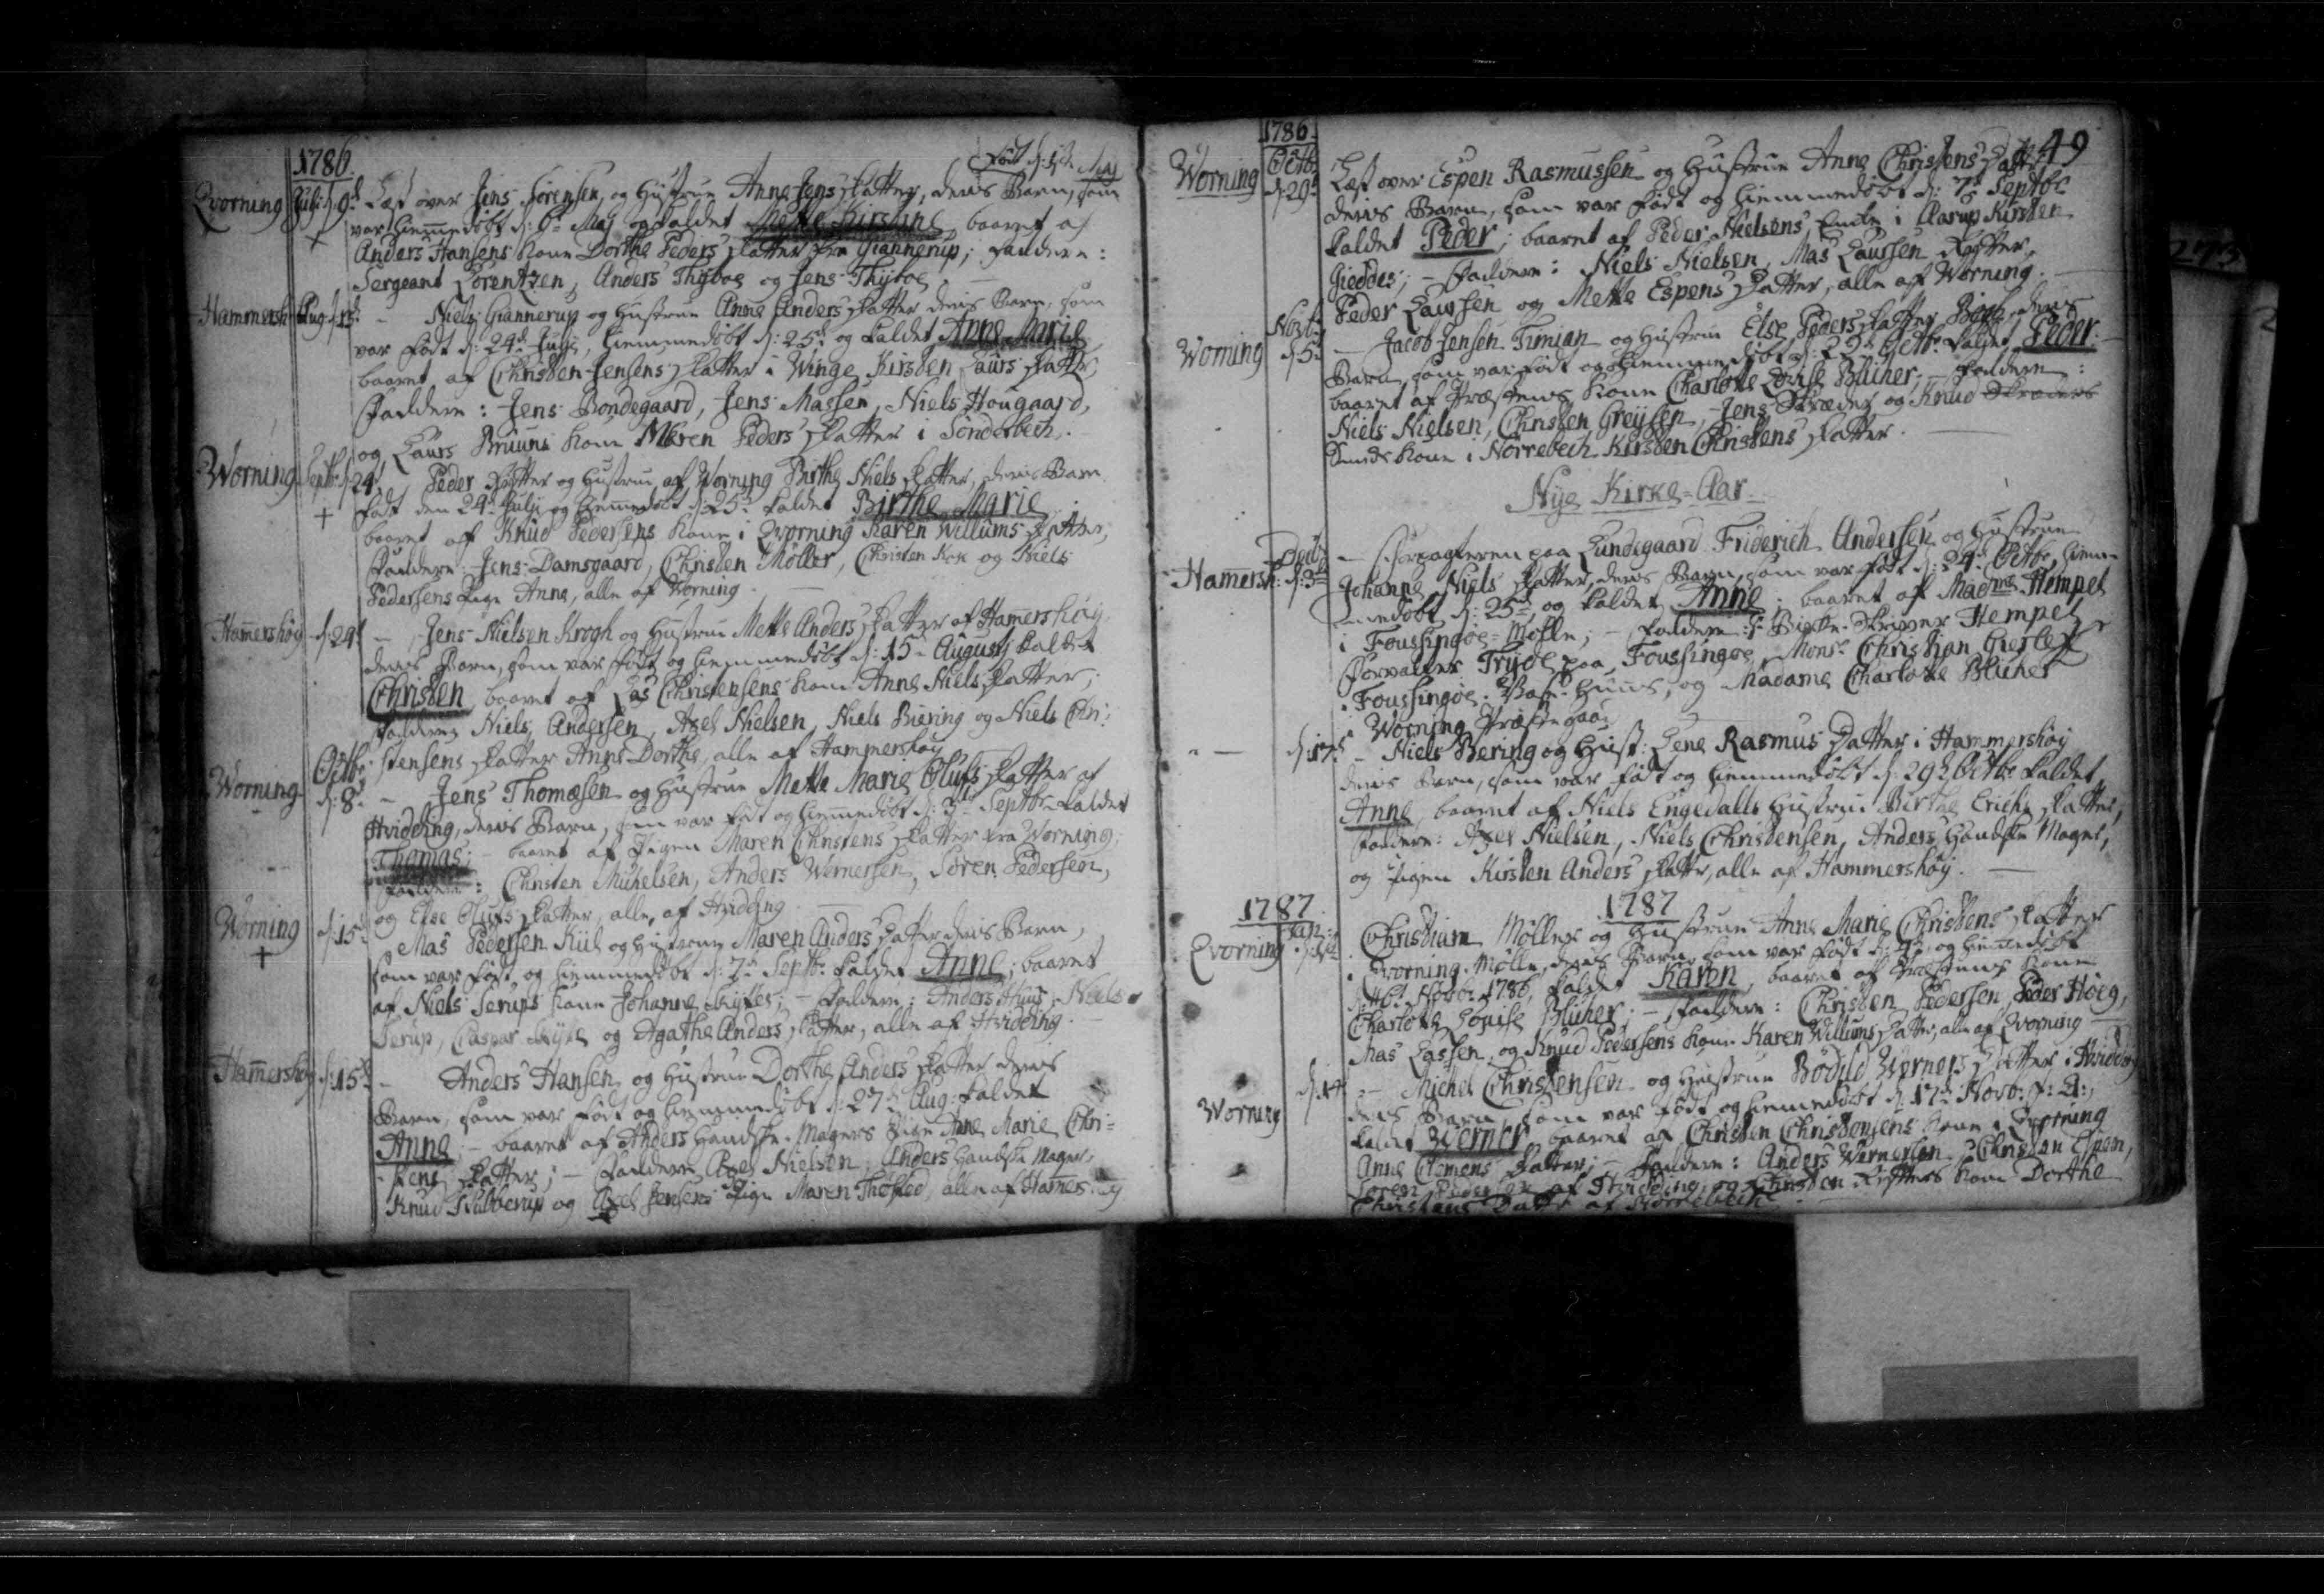 1786.
født d: 5te Maj
Qvorning Julj d 9d Læst over Jens Sørensen, og Hustrue Anne Jens Datter, deris Barn, som
var hiemmedøbt d: 6te Maj og kaldet Mette Kirstine baaret af
+
Anders Hansens Kone Dorthe Peders Datter fra Giannerup; Faddere:
Sergeant Lorentzen, Anders Thyboe og Jens Thyboe
Hammersh: Aug: d 13d - Niels Giannerup og Hustrue Anne Anders Datter deris Barn, som
var født d: 24d Julj, hiemmedøbt d: 25d og kaldet Anne Marie
baaret af Christen Jensens Datter i Winge Kirsten Laurs Datter
Faddere: Jens Bondegaard, Jens Massen, Niels Hougaard,
og Laurs Bruuns Kone Maren Peders Datter i Sønderbech.
Worning Septb: d 24d Peder Rytter og Hustrue af Worning Birthe Niels Datter, deris Barn
født den 24d Julj og hiemmedøbt d: 25d kaldet Birthe Marie
+
baaret af Knud Pedersens Kone i Qvorning Karen Willums Datter,
Faddere: Jens Damsgaard, Christen Møller, Christen Kok og Niels
Pedersens Pige Anne, alle af Worning.
Hamershøy d: 24d - Jens Nielsen Krogh og Hustrue Mette Anders Datter af Hamershøy
deris Barn, som var født og hiemmedøbt d: 15d Augustj kaldet
Christen baaret af Las Christensens Kone Anne Niels Datter;
Faddere Niels Andersen, Axel Nielsen, Niels Biering og Niels Chri:
stensens Datter Anne Dorthe, alle af Hammershøy
Worning Octbr. d: 8d - Jens Thomæsen og Hustrue Mette Marie Olufs Datter af
Hvidding, deris Barn, som var født og hiemmedøbt d: 3d Septbr kaldet
Thomas; - baaret af Pigen Maren Christens Datter fra Worning;
Faddere: Christen Michelsen, Anders Wernersen, Søren Pedersen,
og Else Olufs Datter, alle af Hvidding
Worning d: 15d Mas Pedersen Kiil og Hustrue Maren Anders Datter deris Barn,
+
som var født, og hiemmedøbt d: 7d Septb: kaldet Anne; baaret
af Niels Serups Kone Johanne Skytes; - Faddere: Anders Huus, Niels
Serup, Caspar Skyte og Agathe Anders Datter, alle af Hvidding.
Hamershøy d: 15d - Anders Hansen og Hustrue Dorthe Anders Datter deris
Barn, som var født og hiemmedøbt d: 27d Aug: kaldet
Anne; - baaret af Anders Handske-Magers Pige Anne Marie Chri=
stens Datter; - Faddere Axel Nielsen, Anders Handske Mager,
Knud Skibberup og Axel Jensens Pige Maren Thøsted, alle af Hamershøy
49
1786.
Worning Octb: d: 29d Læst over Espen Rasmussen og Hustrue Anne Christens Datter
deris Barn, som var født og hiemmedøbt d: 7d Septbr
kaldet Peder; baaret af Peder Nielsens Enke i Aarup Kirsten
Gieddes; - Faddere: Niels Nielsen, Mas Laursen Rytter,
Peder Laursen og Mette Espens Datter, alle af Worning.
Worning Novb: d: 5d - Jacob Jensen Timian og Hustrue Else Peders Datter Bigh deris
Barn, som var født og hiemmedøbt d: 22d Octb: kaldet Peder:
baaret af Præstens Kone Charlotte Lovise Blicher; - Faddere:
Niels Nielsen, Christen Greysen, Jens Skræder og Knud Skræders
Smeds Kone i Nørrebech Kirsten Christens Datter.
Nye Kirke-Aar.
Hamersh: Decb: d: 3d - Forpagteren paa Lundegaard Friderich Andersen og Hustrue
Johanne Niels Datter, deris Barn, som var født d: 24d Octbr, hiem-
medøbt d: 25d, og kaldet Anne; baaret af Madme Hempel
i Foussingøe-Mølle; - Faddere: Hr Birke-Skriver Hempel,
Forvalter Tryde paa Foussingøe, Monsr Christian Gierløff
i Foussingøe Bakhuus, og Madame Charlotte Blicher
i Worning Præstegaard
- d: 17d - Niels Bering og Hust: Lene Rasmus Datter i Hammershøy
deris Barn, som var født og hiemmedøbt d: 29d Octbr kaldet
Anne, baaret af Niels Engedalls Hustrue Birthe Erichs Datter,
Faddere: Axel Nielsen, Niels Christensen, Anders Handske Mager,
og Pigen Kirsten Anders Datter, alle af Hammershøy.
1787. 1787
Qvorning Jan: Christian Møller og Hustrue Anne Marie Christens Datter
i Qvorning-Mølle, deris Barn, som var født d: 4d, og hiemmedøbt
Novbr 1786, kaldet Karen, baaret af Præstens Kone
Charlotte Lovise Blicher; - Faddere: Christen Pedersen, Peder Høeg,
Mas Lassen, og Knud Pedersens Kone Karen Willums Datter, alle af Qvorning
Worning d: 14 - Michel Christensen og Hustrue Bodild Werners Datter i Hvidding
deris Barn som var født og hiemmedøbt d. 17d Novb: f: A:,
kaldet Werner, baaret af Christen Christensens Kone i Qvorning
Anne Clemens Datter; - Faddere: Anders Wernersen, Christen Espen,
Søren Pedersen af Hvidding, og Christen Rytters Kone Dorthe
Christens Datter af Nørrebech.